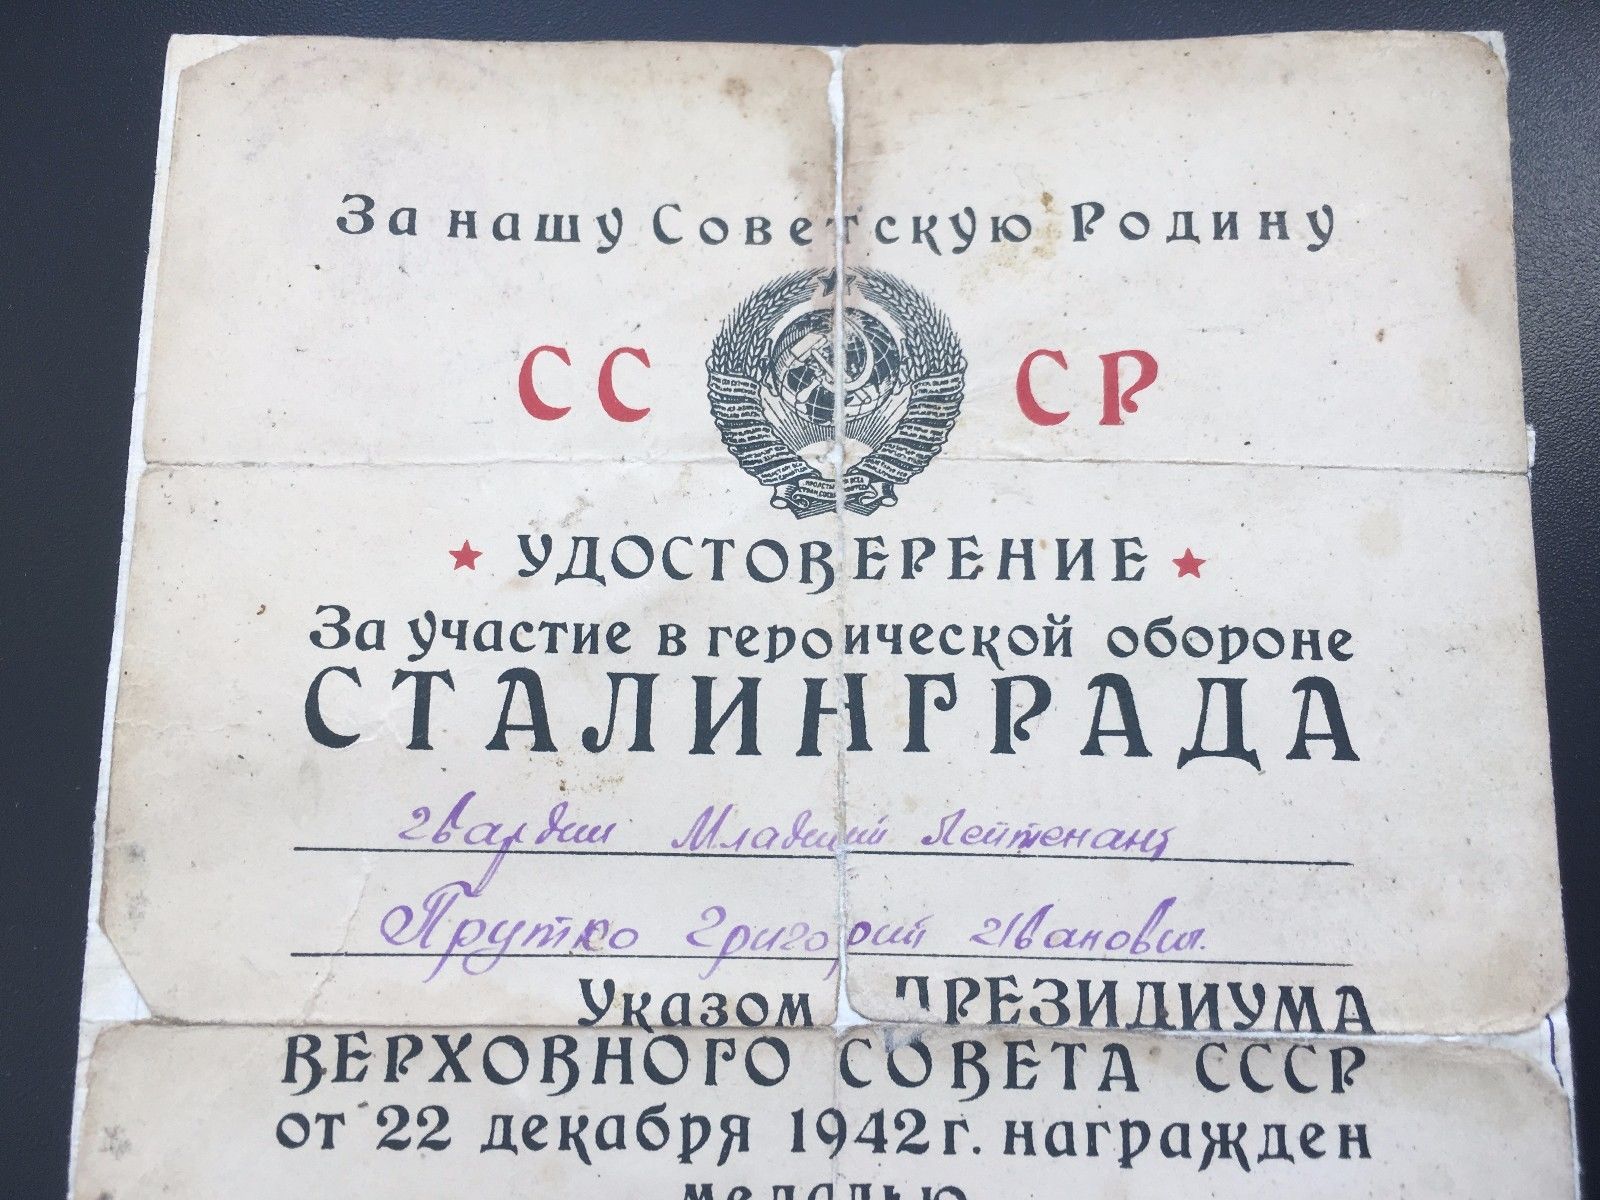 За нашу Советскую Родину
СС СР
УДОСТОВЕРЕНИЕ
За участие в героической обороне
СТАЛИНГРАДА
гвардии Младший Лейтенант
Прутко Григорий Иванович.
Указом ПРЕЗИДИУМА
ВЕРХОВНОГО СОВЕТА СССР
от 22 декабря 1942 г. награжден
медалью